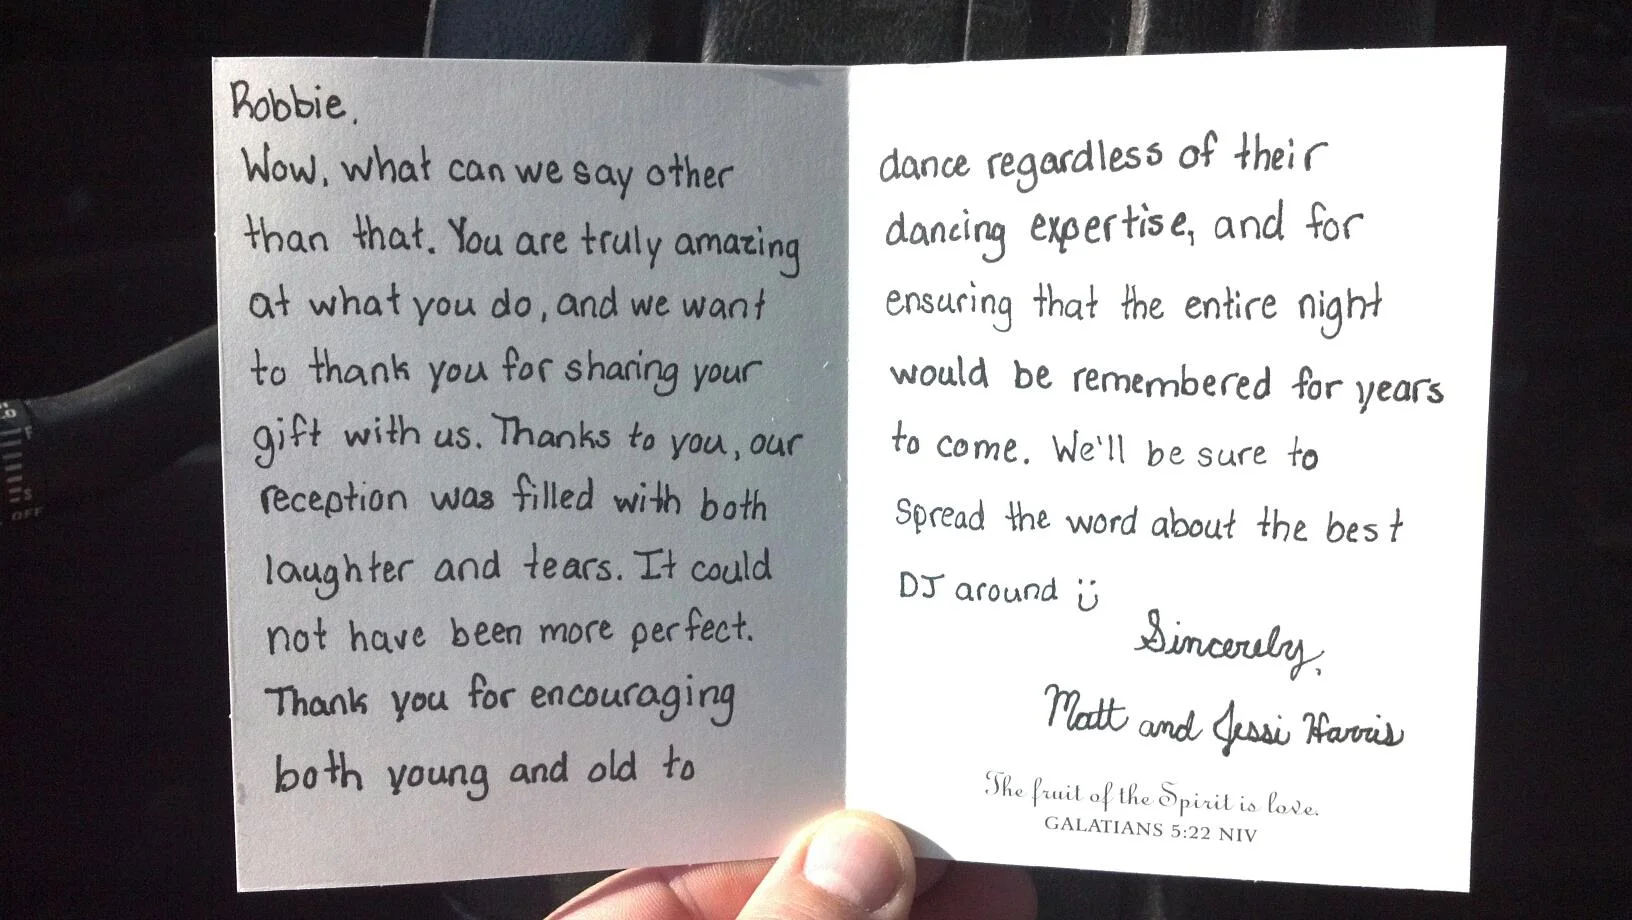 Robbie,
Wow, what can we say other
than that. You are truly amazing
at what you do, and we want
to thank you for sharing your
gift with us. Thanks to you, our
reception was filled with both
laughter and tears. It could
not have been more perfect.
Thank you for encouraging
both young and old to
dance regardless of their
dancing expertise, and for
ensuring that the entire night
would be remembered for years
to come. We'll be sure to
spread the word about the best
DJ around :)
Sincerely,
Matt and Jessi Harris
The fruit of the Spirit is love.
GALATIANS 5:22 NIV
OFF